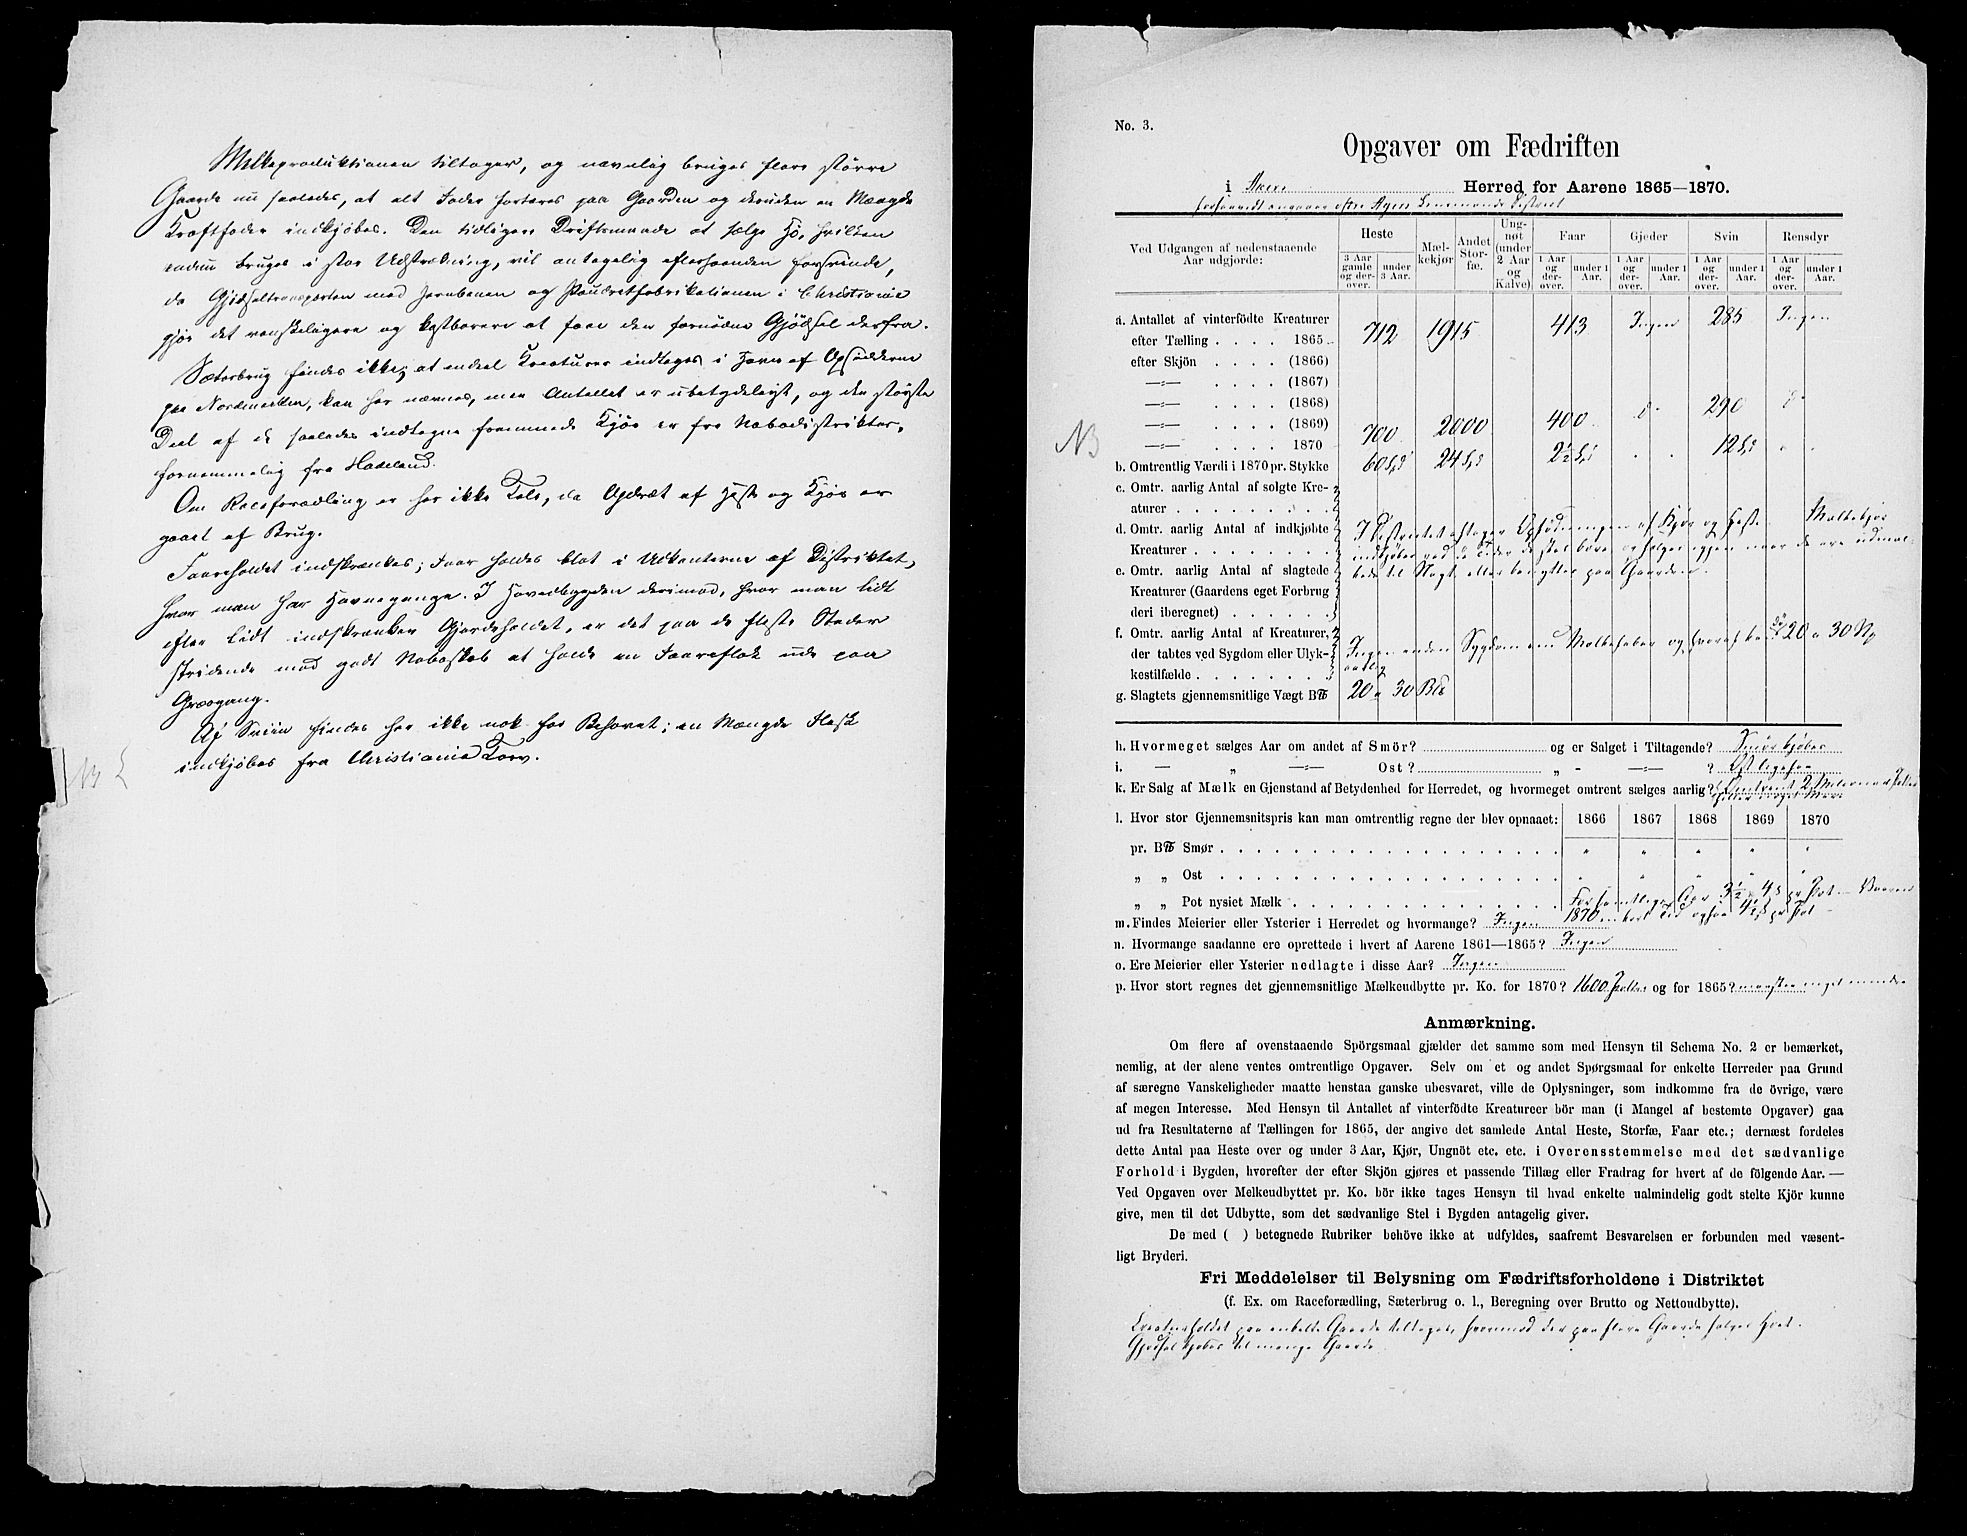 Melkeproduktionen tiltager, og navnlig bruges flere större
Gaarde nu saaledes, at alt Foder fortæres paa Gaarden og desuden en Mængde
Kraftfoder indkjøbes. Den tidligere Driftsmaade at sælge Hö, hvilken
endnu bruges i stor Udstrækning, vil antagelig efterhaanden forsvinde,
da Gjödseltransporten med Jernbanen og Poudretfabrikationen i Christiania
gjör det vanskeligere og kostbarere at faae den fornödne Gjödsel derfra.
Sæterbrug findes ikke; at endeel Kreaturer indtages i Havn af Opsidderne
paa Nordmarken, kan her nævnes, men Antallet er ubetydeligt, og den störste
Deel af de saaledes indtagne fremmede Kjör er fra Nabodistrikter,
fornemmelig fra Hadeland.
Om Raceforædling er her ikke Tale, da Opdræt af Heste og Kjör er
gaaet af Brug.
Faareholdet indskrænkes; Faar holdes blot i Udkanterne af Distriktet,
hvor man har Havnegange. I Hovedbygden derimod, hvor man lidt
efter lidt indskrænker Gjerdeholdet, er det paa de fleste Steder
stridende mod godt Naboskab at holde en Faareflok ude paa
Græsgang.
Af Sviin findes her ikke nok for Behovet; en Mængde Flesk
indkjöbes fra Christiania Torv.
NB
No. 3.
Opgaver om Fædriften
i Akers Herred for Aarene 1865—1870.
forsaavidt angaaer Lensmands District
Ved Udgangen af nedenstaaende Aar udgjorde:
Heste
3 Aar gamle og derover.
under 3 Aar.
Mælkekjør
Andet Storfæ.
Ungnöt (under 2 Aar og Kalve)
Faar
1 Aar og derover.
under 1 Aar.
Gjeder
1 Aar og derover.
under 1 Aar.
Svin
1 Aar og derover.
under 1 Aar.
Rensdyr
1 Aar og derover.
under 1 Aar.
a. Antallet af vinterfödte Kreaturer
efter Tælling . . . . 1865 712 1915 413 Ingen 285 Ingen
efter Skjön . . . . (1866)
—:— . . . . (1867)
—:— . . . . (1868)
—:— . . . . (1869)
—:— . . . . 1870 700 2000 400 do 290 do
NB
b. Omtrentlig Værdi i 1870 pr. Stykke 60 Spd 24 Spd 2½ Spd 12 Spd
c. Omtr. aarlig Antal af solgte Kreaturer
d. Omtr. aarlig Antal af indkjøbte Kreaturer
e. Omtr. aarlig Antal af slagtede Kreaturer (Gaardens eget Forbrug deri iberegnet)
I Districtet aftager Opfödningen af Kjör og Heste. Malkekjör
indkjöbes ved de Tider de skal bære og sælges igjen naar de ere udmal-
kede til Slagt, eller benyttes paa Gaarden.
f. Omtr. aarlig Antal af Kreaturer, der tabtes ved Sygdom eller Ulykkestilfælde
Ingen anden Sygdom end Malkefeber og hvoraf 20 a 30 Np
aarlig
g. Slagtets gjennemsnitlige Vægt B℔ 20 a 30 B℔
h. Hvormeget sælges Aar om andet af Smör? og er Salget i Tiltagende? Smör kjöbes
i. — „ —:— Ost? „ - —:— ? Ost ligesaa
k. Er Salg af Mælk en Gjenstand af Betydenhed for Herredet, og hvormeget omtrent sælges aarlig? Omtrent 2 Millioner Potter
eller noget Mere
l. Hvor stor Gjennemsnitspris kan man omtrentlig regne der blev opnaaet: 1866 1867 1868 1869 1870
pr. B℔ Smør „ „ „ „ „
„ „ Ost „ „ „ „ „
„ „ Pot nysiet Mælk For samtlige Aar 3½ a 4 ß pr Pot —
1870 en kort Tid ogsaa 4½ ß pr Pot —
m. Findes Meierier eller Ysterier i Herredet og hvormange? Ingen
n. Hvormange saadanne ere oprettede i hvert af Aarene 1861—1865? Ingen
o. Ere Meierier eller Ysterier nedlagte i disse Aar? Ingen
p. Hvor stort regnes det gjennemsnitlige Mælkeudbytte pr. Ko. for 1870? 1600 Potter og for 1865? næsten noget mindre
Anmærkning.
Om flere af ovenstaaende Spörgsmaal gjælder det samme som med Hensyn til Schema No. 2 er bemærket,
nemlig, at der alene ventes omtrentlige Opgaver. Selv om et og andet Spørgsmaal for enkelte Herreder paa Grund
af særegne Vanskeligheder maatte henstaa ganske ubesvaret, ville de Oplysninger, som indkomme fra de övrige, være
af megen Interesse. Med Hensyn til Antallet af vinterfödte Kreatureer bör man (i Mangel af bestemte Opgaver) gaa
ud fra Resultaterne af Tællingen for 1865, der angive det samlede Antal Heste, Storfæ, Faar etc.; dernæst fordeles
dette Antal paa Heste over og under 3 Aar, Kjør, Ungnöt etc. etc. i Overensstemmelse med det sædvanlige
Forhold i Bygden, hvorefter der efter Skjön gjøres et passende Tillæg eller Fradrag for hvert af de fölgende Aar. —
Ved Opgaven over Melkeudbyttet pr. Ko. bör ikke tages Hensyn til hvad enkelte ualmindelig godt stelte Kjör kunne
give, men til det Udbytte, som det sædvanlige Stel i Bygden antagelig giver.
De med ( ) betegnede Rubriker behöve ikke at udfyldes, saafremt Besvarelsen er forbunden med væsent-
ligt Bryderi.
Fri Meddelelser til Belysning om Fædriftsforholdene i Distriktet
(f. Ex. om Raceforædling, Sæterbrug o. l., Beregning over Brutto og Nettoudbytte).
Kreaturholdet paa enkelte Gaarde tiltager, hvorimod der paa flere Gaarde sælges Höet.
Gjödsel kjöbes til mange Gaarde